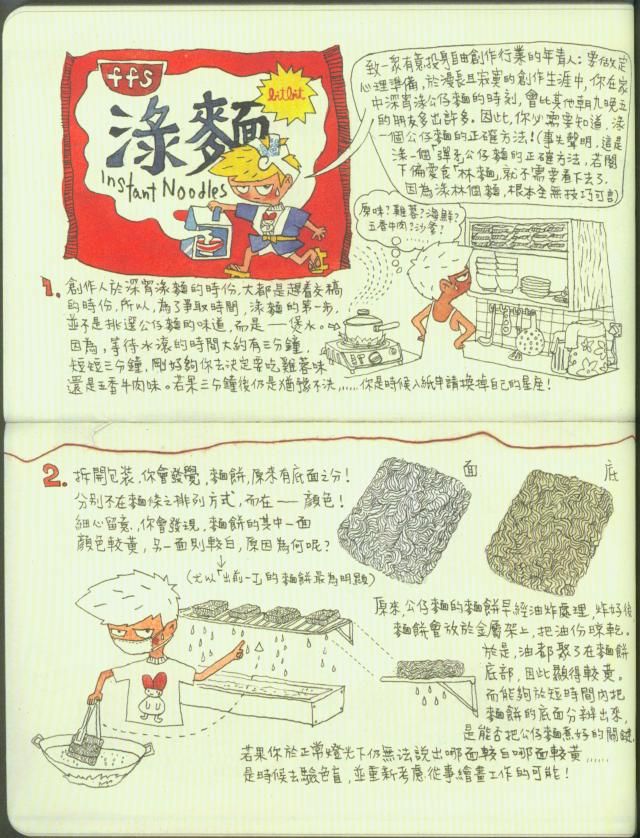 ffS
bitbit
淥麵
Instant Noodles
致一眾有意投身自由創作行業的年青人：要做定
心理準備，於漫長且寂寞的創作生涯中，你在家
中深宵淥公仔麵的時刻，會比其他朝九晚五
的朋友多出許多。因此，你必需要知道，淥
一個公仔麵的正確方法！（事先聲明，這是
淥一個「彈」公仔麵的正確方法，若閣
下偏愛食「林麵」，就不需要看下去了，
因為淥林個麵，根本全無技巧可言）
原味？雞蓉？海鮮？
五香牛肉？沙爹？
1. 創作人於深宵淥麵的時份，大都是趕着交稿
的時份，所以，為了爭取時間，淥麵的第一步，
並不是挑選公仔麵的味道，而是——煲水。
因為，等待水滾的時間大約有三分鐘，
短短三分鐘，剛好夠你去決定要吃雞蓉味
還是五香牛肉味。若果三分鐘後仍是猶豫不決，……你是時候入紙申請換掉自己的星座！
2. 拆開包裝，你會發覺，麵餅，原來有底面之分！
分別不在麵條之排列方式，而在——顏色！
細心留意，你會發現，麵餅的其中一面
顏色較黃，另一面則較白，原因為何呢？
（尤以「出前一丁」的麵餅最為明顯）
面
底
原來，公仔麵的麵餅早經油炸處理，炸好後，
麵餅會放於金屬架上，把油份晾乾。
於是，油都聚了在麵餅
底部，因此顯得較黃。
而能夠於短時間內把
麵餅的底面分辨出來，
是能否把公仔麵煮好的關鍵，
若果你於正常燈光下仍無法說出哪面較白哪面較黃……
是時候去驗色盲，並重新考慮從事繪畫工作的可能！